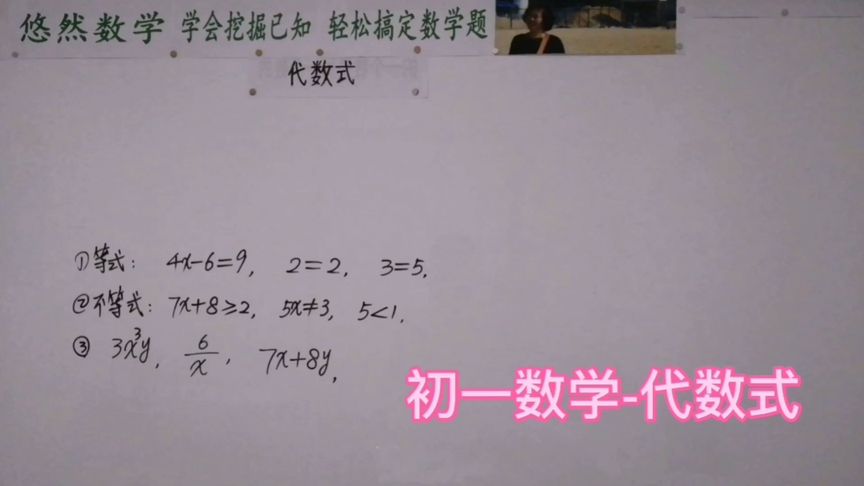 悠然数学 学会挖掘已知 轻松搞定数学题
代数式
①等式: 4x-6=9, 2=2, 3=5.
②不等式: 7x+8≥2, 5x≠3, 5<1.
③ 3x³y, 6/x, 7x+8y,
初一数学-代数式